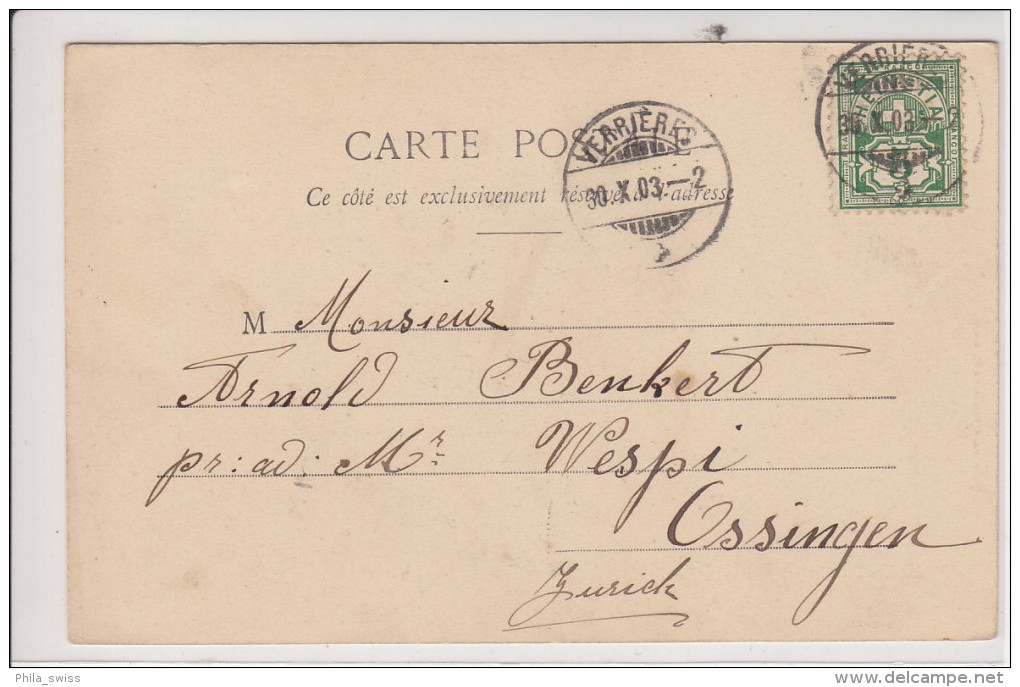 CARTE POSTALE
Ce côté est exclusivement réservé à l'adresse
VERRIÈRES
30.X.03.–2
VERRIÈRES
30.X.03.–2
FRANCO
HELVETIA
FRANCO
FRANCO
5
M Monsieur
Arnold Benkert
pr: ad: Mr Wespi
Ossingen
Zurich
Phila_swiss
www.delcampe.net